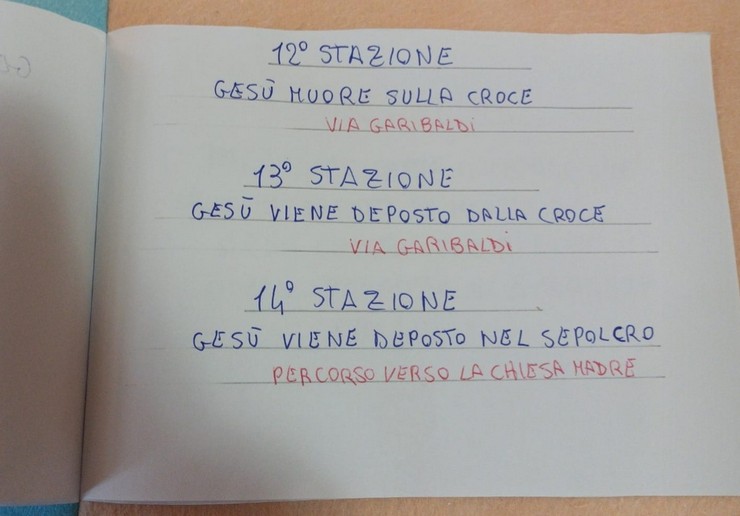 12° STAZIONE
GESÙ MUORE SULLA CROCE
VIA GARIBALDI
13° STAZIONE
GESÙ VIENE DEPOSTO DALLA CROCE
VIA GARIBALDI
14° STAZIONE
GESÙ VIENE DEPOSTO NEL SEPOLCRO
PERCORSO VERSO LA CHIESA MADRE